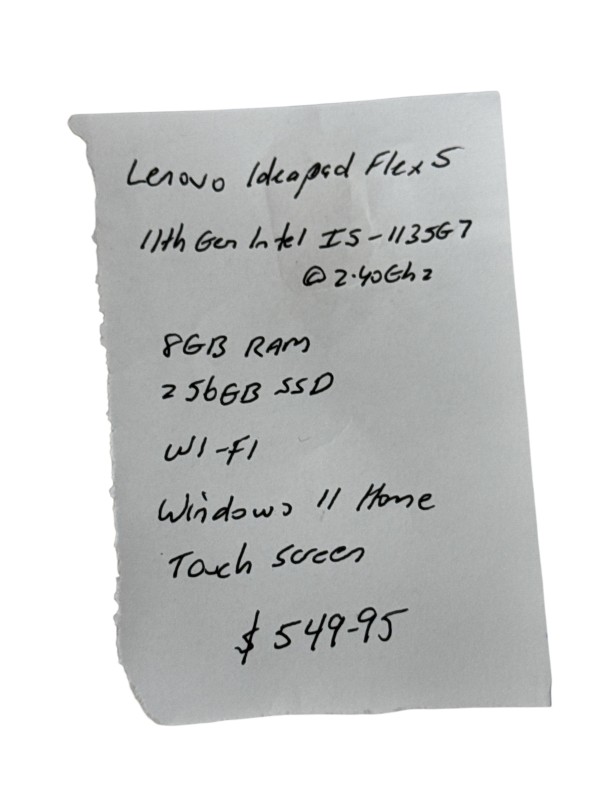 Lenovo Ideapad Flex 5
11th Gen Intel I5-1135G7
@ 2.40Ghz
8GB RAM
256GB SSD
WI-FI
Windows 11 Home
Touch Screen
$549-95